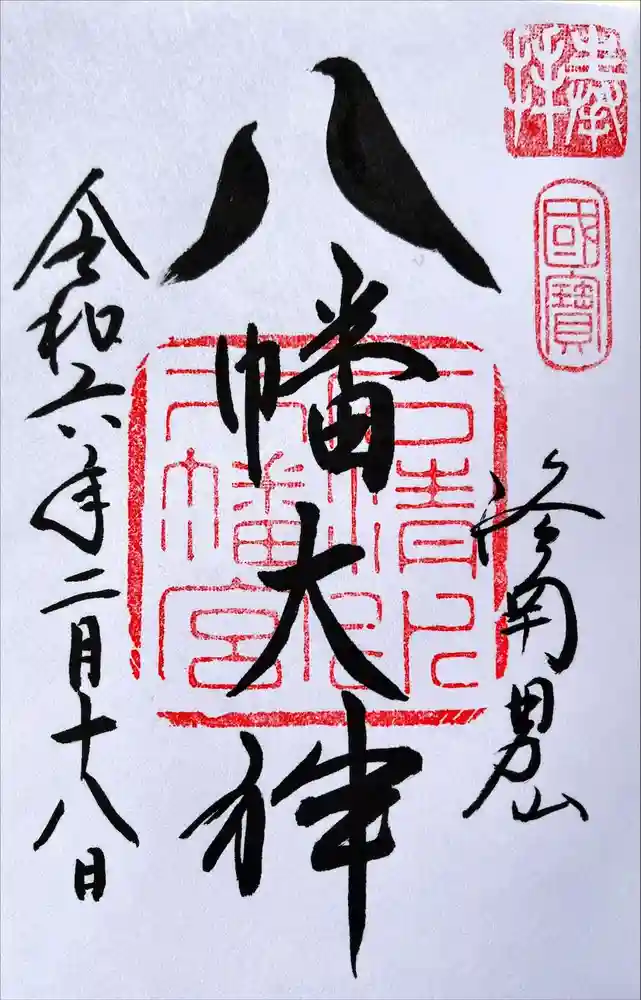 奉拝
國寶
洛南男山
八幡大神
石清水
八幡宮
令和六年二月十八日